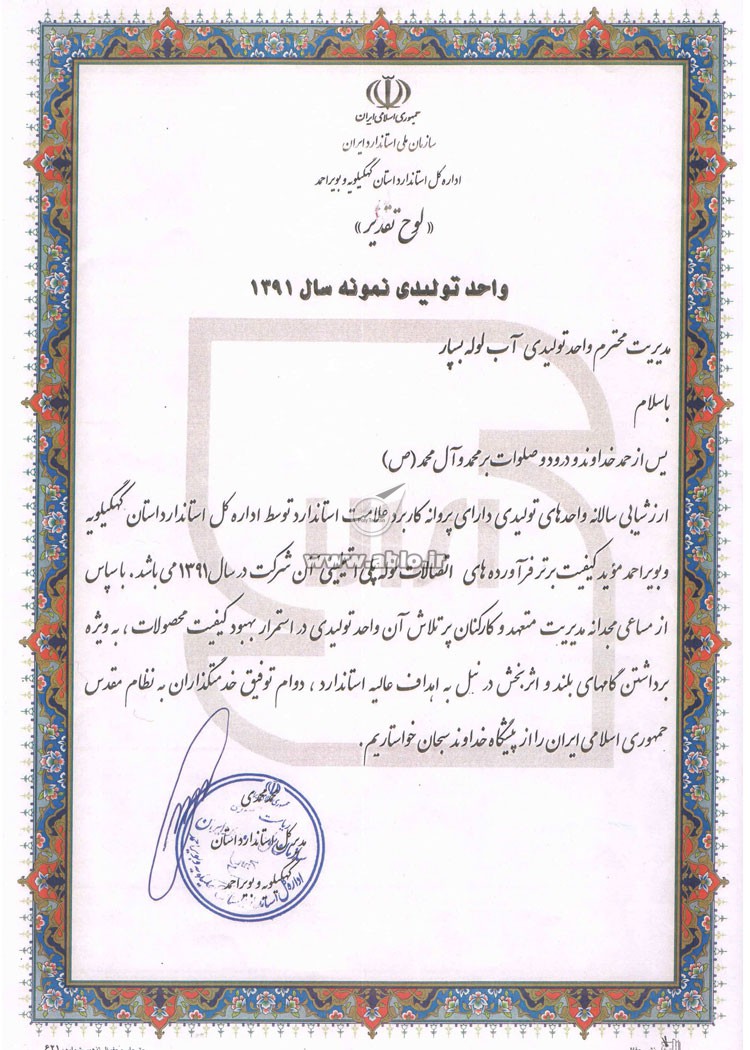 جمهوری اسلامی ایران
سازمان ملی استاندارد ایران
اداره کل استاندارد استان کهگیلویه و بویراحمد
«لوح تقدیر»
واحد تولیدی نمونه سال ۱۳۹۱
مدیریت محترم واحد تولیدی آب لوله بسپار
باسلام
پس از حمد خداوند و درود و صلوات بر محمد و آل محمد (ص)
ارزشیابی سالانه واحدهای تولیدی دارای پروانه کاربرد علامت استاندارد توسط اداره کل استاندارد استان کهگیلویه
و بویراحمد مؤید کیفیت برتر فرآورده های اتصالات لوله پلی اتیلنی آن شرکت در سال ۱۳۹۱ می باشد. با سپاس
www.ablo.ir
از مساعی مجدانه مدیریت متعهد و کارکنان پرتلاش آن واحد تولیدی در استمرار بهبود کیفیت محصولات، به ویژه
برداشتن گامهای بلند و اثربخش در نیل به اهداف عالیه استاندارد، دوام توفیق خدمتگذاران به نظام مقدس
جمهوری اسلامی ایران را از پیشگاه خداوند سبحان خواستاریم.
محمدی
مدیرکل استاندارد استان
کهگیلویه و بویراحمد